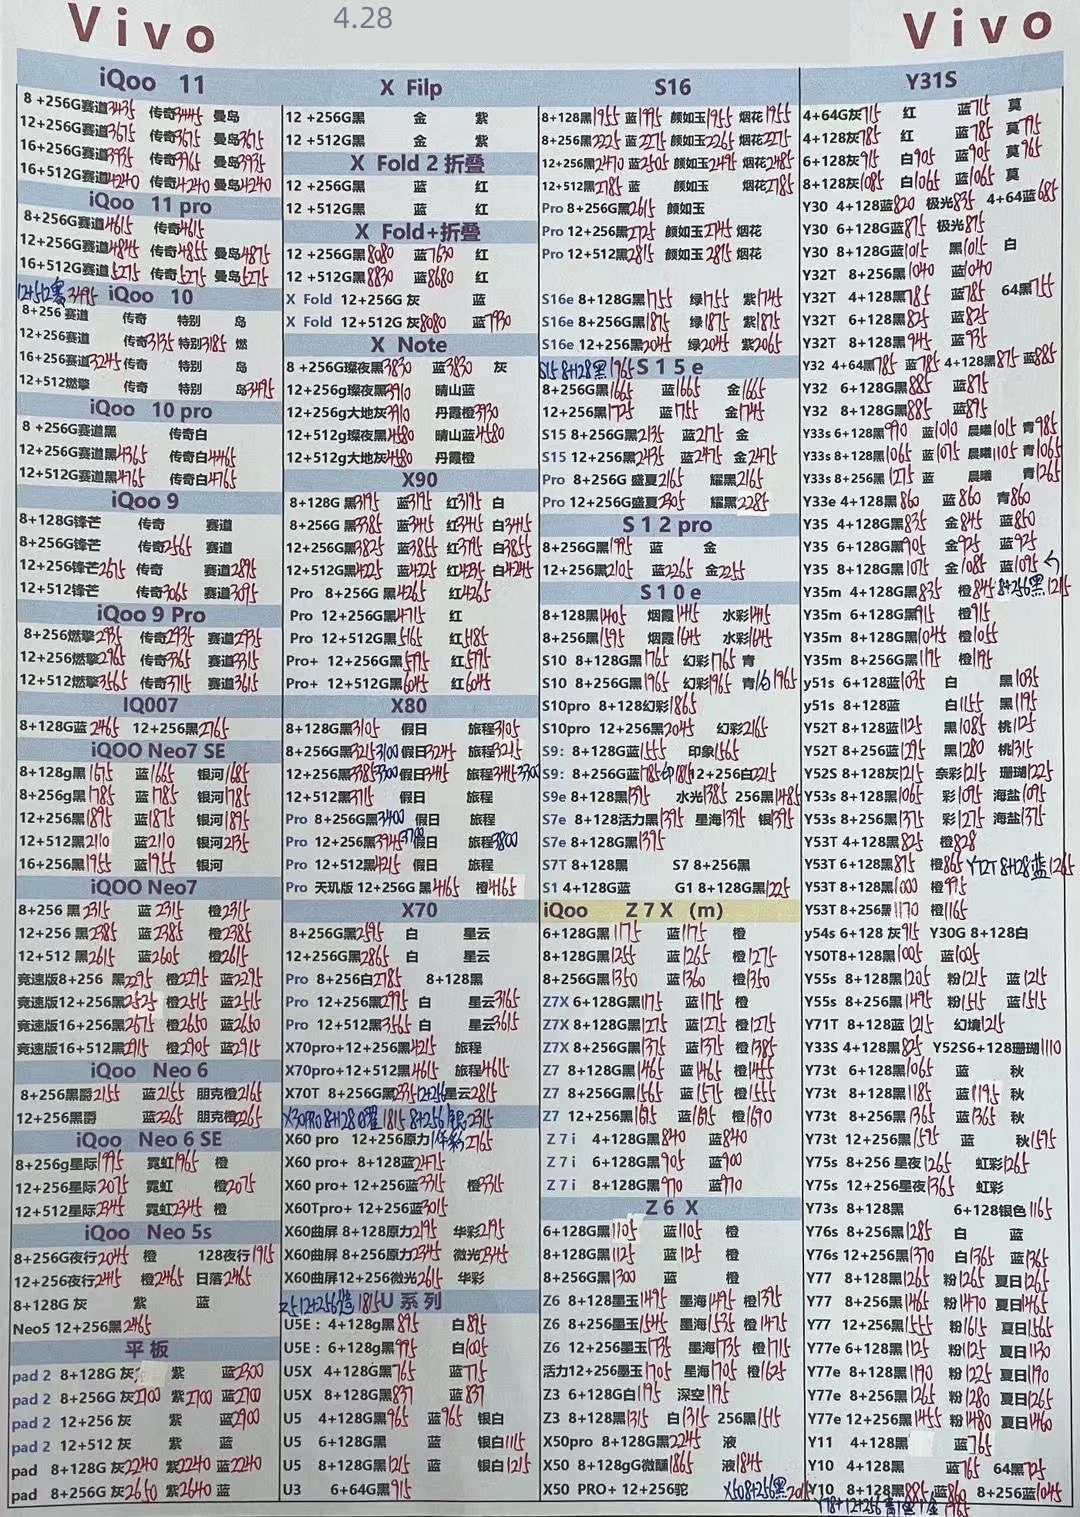 4.28
Vivo
Vivo
iQoo 11
8 +256G赛道3435 传奇3445 曼岛
12+256G赛道3675 传奇3675 曼岛3675
16+256G赛道3935 传奇3965 曼岛3935
16+512G赛道4240 传奇4240 曼岛4240
iQoo 11 pro
8+256G赛道4615 传奇4615
12+256G赛道4845 传奇4855 曼岛4875
16+512G赛道5275 传奇5275 曼岛5275
12+512黑3495 iQoo 10
8+256 赛道 传奇 特别 岛
12+256赛道 传奇3135 特别3185 燃
16+256赛道3245 传奇 特别 岛
12+512燃擎 传奇 特别 岛3495
iQoo 10 pro
8 +256G赛道黑 传奇白
12+256G赛道黑4365 传奇白4465
12+512G赛道黑4765 传奇白4765
iQoo 9
8+128G锋芒 传奇 赛道
8+256G锋芒 传奇2565 赛道
12+256锋芒2675 传奇 赛道2895
12+512锋芒 传奇3065 赛道3095
iQoo 9 Pro
8+256燃擎2935 传奇2935 赛道2935
12+256燃擎2965 传奇3365 赛道3315
12+512燃擎3565 传奇3715 赛道3615
IQ007
8+128G蓝2465 12+256黑2765
iQOO Neo7 SE
8+128g黑1675 蓝1665 银河1685
8+256g黑1785 蓝1785 银河1785
12+256黑1895 蓝1875 银河1895
12+512黑2110 蓝2110 银河2135
16+256黑1955 蓝1955 银河
iQOO Neo7
8+256 黑2315 蓝2315 橙2315
12+256 黑2385 蓝2385 橙2385
12+512 黑2615 蓝2605 橙2615
竞速版8+256 黑2295 橙2295 蓝2295
竞速版12+256黑2525 橙2515 蓝2515
竞速版16+256黑2675 橙2650 蓝2650
竞速版16+512黑2915 橙2905 蓝2915
iQoo Neo 6
8+256黑爵2155 蓝2165 朋克橙2165
12+256黑爵 蓝2265 朋克橙2265
iQoo Neo 6 SE
8+256g星际1995 霓虹1965 橙
12+256星际2075 霓虹 橙2075
12+512星际2345 霓虹2345 橙
iQoo Neo 5s
8+256G夜行2045 橙 128夜行1915
12+256夜行2415 橙2465 日落2465
8+128G 灰 紫 蓝
Neo5 12+256黑2465
平板
pad 2 8+128G 灰 紫 蓝2300
pad 2 8+256G 灰2700 紫2700 蓝2700
pad 2 12+256 灰 紫 蓝2900
pad 2 12+512 灰 紫 蓝
pad 8+128G 灰2240 紫2240 蓝2240
pad 8+256G 灰2650 紫2640 蓝
X Filp
12 +256G黑 金 紫
12 +512G黑 金 紫
X Fold 2 折叠
12 +256G黑 蓝 红
12 +512G黑 蓝 红
X Fold+折叠
12 +256G黑8080 蓝7630 红
12 +512G黑8830 蓝8680 红
X Fold 12+256G 灰 蓝
X Fold 12+512G 灰8080 蓝7930
X Note
8 +256G璨夜黑3830 蓝3830 灰
12+256g璨夜黑3910 晴山蓝
12+256g大地灰3910 丹霞橙3930
12+512g璨夜黑4580 晴山蓝4580
12+512g大地灰4580 丹霞橙
X90
8+128G 黑3195 蓝3195 红3195 白
8+256G 黑3385 蓝3445 红3445 白3445
12+256G黑3825 蓝3855 红3795 白3855
12+512G黑4225 蓝4225 红4235 白4245
Pro 8+256G 黑4265 红4265
Pro 12+256G黑4715 红
Pro 12+512G黑5165 红
Pro+ 12+256G黑5795 红5795
Pro+ 12+512G黑6045 红6045
X80
8+128G黑3105 假日 旅程3105
8+256G黑3215 3100 假日3245 旅程3215
12+256黑3385 3300 假日3445 旅程3445 3300
12+512黑3715 假日 旅程
Pro 8+256G黑3400 假日 旅程
Pro 12+256黑3945 3700 假日 旅程3800
Pro 12+512黑4215 假日 旅程
Pro 天玑版 12+256G 黑4165 橙4165
X70
8+256G黑2595 白 星云
12+256G黑2865 白 星云
Pro 8+256白2785 8+128黑
Pro 12+256黑2995 白 星云3165
Pro 12+512黑3565 白 星云3615
X70pro+12+256黑4215 旅程
X70pro+12+512黑4615 旅程4615
X70T 8+256G黑2335 12+256星云2815
X60 pro 12+256原力 2765
X60 pro+ 8+128蓝2475
X60 pro+ 12+256蓝3315 橙3315
X60Tpro+ 12+256蓝3015
X60曲屏 8+128原力2195 华彩2195
X60曲屏 8+256原力2345 微光2345
X60曲屏12+256微光2615 华彩
U 系列
U5E： 4+128g黑895 白895
U5E： 6+128g黑995 白1005
U5X 4+128G黑765 蓝775
U5X 8+128G黑837 蓝837
U5 4+128G黑965 蓝965 银白
U5 6+128G黑 蓝 银白1115
U5 8+128G黑1215 蓝 银白1215
U3 6+64G黑915
S16
8+128黑1955 蓝1995 颜如玉1955 烟花1955
8+256黑2225 蓝2275 颜如玉2265 烟花2275
12+256黑2470 蓝2505 颜如玉2495 烟花2485
12+512黑2785 蓝 颜如玉 烟花2785
Pro 8+256G黑2615 颜如玉
Pro 12+256黑2725 颜如玉2745 烟花
Pro 12+512黑2815 颜如玉2815 烟花
S16e 8+128G黑1755 绿1755 紫1745
S16e 8+256G黑1875 绿1875 紫1875
S16e 12+256黑2045 绿2045 紫2065
S15 8+128黑1965 S15e
8+256G黑1665 蓝1665 金1665
12+256黑1725 蓝1755 金1745
S15 8+256G黑2135 蓝2175 金
S15 12+256黑2435 蓝2475 金2475
Pro 8+256G 盛夏2165 耀黑2165
Pro 12+256G盛夏2305 耀黑2285
S12 pro
8+256G黑1995 蓝 金
12+256黑2105 蓝2265 金2255
S10e
8+128黑1405 烟霞1445 水彩1415
8+256黑1595 烟霞1645 水彩1645
S10 8+128G黑1765 幻彩1765 青
S10 8+256G黑1965 幻彩1965 青1965
S10pro 8+128幻彩1865
S10pro 12+256黑2045 幻彩2165
S9： 8+128G蓝1555 印象1565
S9： 8+256G蓝1785 印1815 12+256白2215
S9e 8+128黑1395 水光1385 256黑1485
S7e 8+128活力黑1395 星海1395 银1395
S7e 8+128G黑1395
S7T 8+128黑 S7 8+256黑
S1 4+128G蓝 G1 8+128G黑1225
iQoo Z7X (m)
6+128G黑1175 蓝1175 橙
8+128G黑1255 蓝1265 橙1275
8+256G黑1350 蓝1360 橙1350
Z7X 6+128G黑1175 蓝1175 橙
Z7X 8+128G黑1275 蓝1275 橙1275
Z7X 8+256G黑1375 蓝1375 橙1385
Z7 8+128G黑1465 蓝1465 橙1455
Z7 8+256G黑1565 蓝1575 橙1555
Z7 12+256黑1695 蓝1695 橙1690
Z7i 4+128G黑840 蓝840
Z7i 6+128G黑905 蓝900
Z7i 8+128G黑970 蓝970
Z6 X
6+128G黑1105 蓝1105 橙
8+128G黑1125 蓝1125 橙
8+256G黑1300 蓝 橙
Z6 8+128墨玉1495 墨海1495 橙1395
Z6 8+256墨玉1545 墨海1535 橙1475
Z6 12+256墨玉1735 墨海1735 橙1715
活力12+256墨玉1705 星海1705 橙1625
Z3 6+128G白1195 深空1195
Z3 8+128黑1315 白1315 256黑1515
X50pro 8+128G黑2245 液
X50 8+128gG微醺1865 液1845
X50 PRO+ 12+256驼
Y31S
4+64G灰715 红 蓝715 莫
4+128灰785 红 蓝785 莫795
6+128灰915 白905 蓝905 莫765
8+128灰1085 白1065 蓝1065 莫
Y30 4+128蓝820 极光835 4+64蓝685
Y30 6+128G蓝875 极光875
Y30 8+128G蓝1015 黑1015 白
Y32T 8+256黑1040 蓝1040
Y32T 4+128黑785 蓝785 64黑755
Y32T 6+128黑825 蓝825
Y32T 8+128黑945 蓝935
Y32 4+64黑785 蓝785 4+128黑875 蓝885
Y32 6+128G黑885 蓝875
Y32 8+128G黑885 蓝895
Y33s 6+128黑990 蓝1010 晨曦1015 青985
Y33s 8+128黑1065 蓝1075 晨曦1105 青1065
Y33s 8+256黑1275 蓝 晨曦 青1265
Y33e 4+128黑860 蓝860 青860
Y35 4+128G黑835 金845 蓝850
Y35 6+128G黑905 金925 蓝925
Y35 8+128G黑1075 金1085 蓝1095
Y35m 4+128G黑835 橙845 8+256黑1215
Y35m 6+128G黑915 橙915
Y35m 8+128G黑1045 橙1055
Y35m 8+256G黑1195 橙1195
y51s 6+128蓝1035 白 黑1035
y51s 8+128蓝 白1155 黑1195
Y52T 8+128蓝1125 黑1085 桃1125
Y52T 8+256蓝1295 黑1280 桃1315
Y52S 8+128灰1215 奈彩1215 珊瑚1225
Y53s 8+128黑1065 彩1095 海盐1095
Y53s 8+256黑1375 彩1275 海盐1375
Y53T 4+128黑825 橙828
Y53T 6+128黑875 橙865 Y72T 8+128蓝1265
Y53T 8+128黑1000 橙995
Y53T 8+256黑1170 橙1165
y54s 6+128 灰915 Y30G 8+128白
Y50T8+128黑1005 蓝1005
Y55s 8+128黑1205 粉1215 蓝1215
Y55s 8+256黑1495 粉1515 蓝1515
Y71T 8+128蓝1215 幻境1215
Y33S 4+128黑825 Y52S6+128珊瑚1110
Y73t 6+128黑1085 蓝 秋
Y73t 8+128黑1185 蓝1195 秋
Y73t 8+256黑1365 蓝1365 秋
Y73t 12+256黑1595 蓝 秋1595
Y75s 8+256 星夜1265 虹彩1265
Y75s 12+256星夜1365 虹彩
Y73s 8+128黑 6+128银色1165
Y76s 8+256黑1285 白 蓝
Y76s 12+256黑1370 白1365 蓝1365
Y77 8+128黑1265 粉1265 夏日1265
Y77 8+256黑1465 粉1470 夏日1465
Y77 12+256黑1555 粉1615 夏日1565
Y77e 6+128黑1125 粉1125 夏日1130
Y77e 8+128黑1190 粉1225 夏日1190
Y77e 8+256黑1265 粉1280 夏日1265
Y77e 12+256黑1455 粉1480 夏日1460
Y11 4+128黑 蓝765
Y10 4+128黑 蓝765 64黑725
Y10 8+128黑885 蓝860 8+256蓝1045